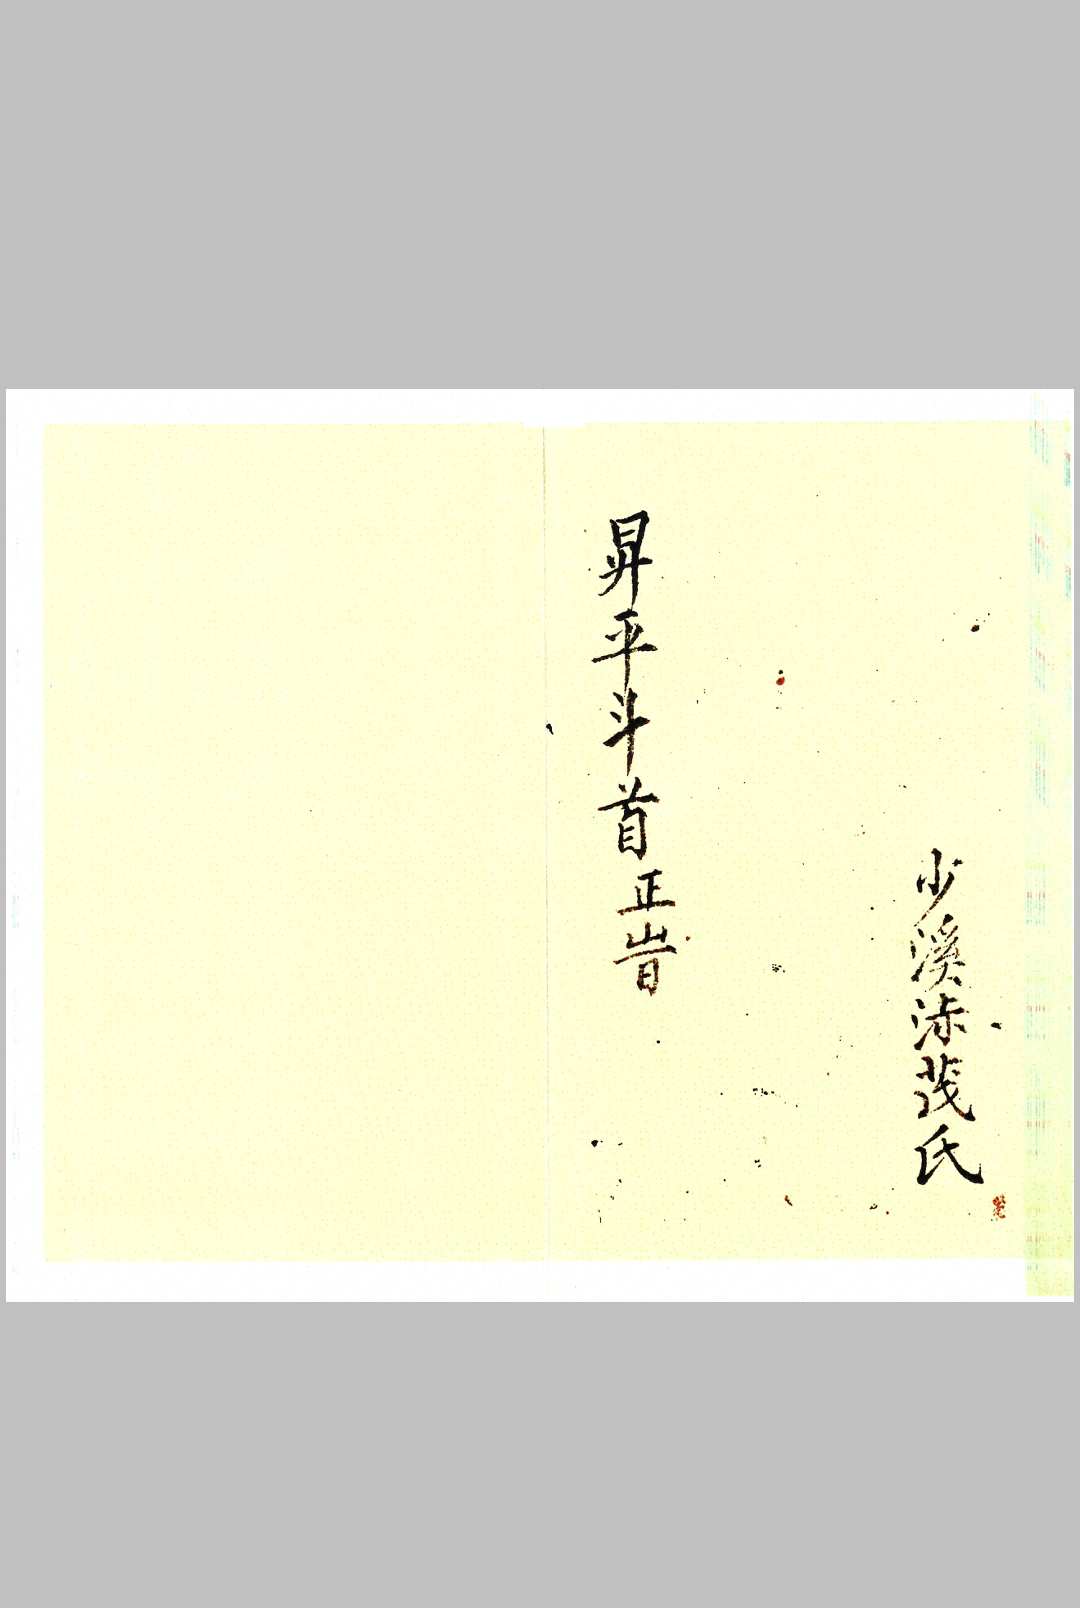 少溪沭茂氏
昇平斗首正旹